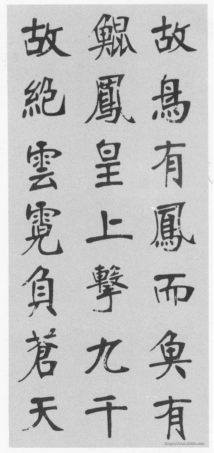 故鳥有鳳而魚有
鯤鳳皇上擊九千
故絕雲霓負蒼天